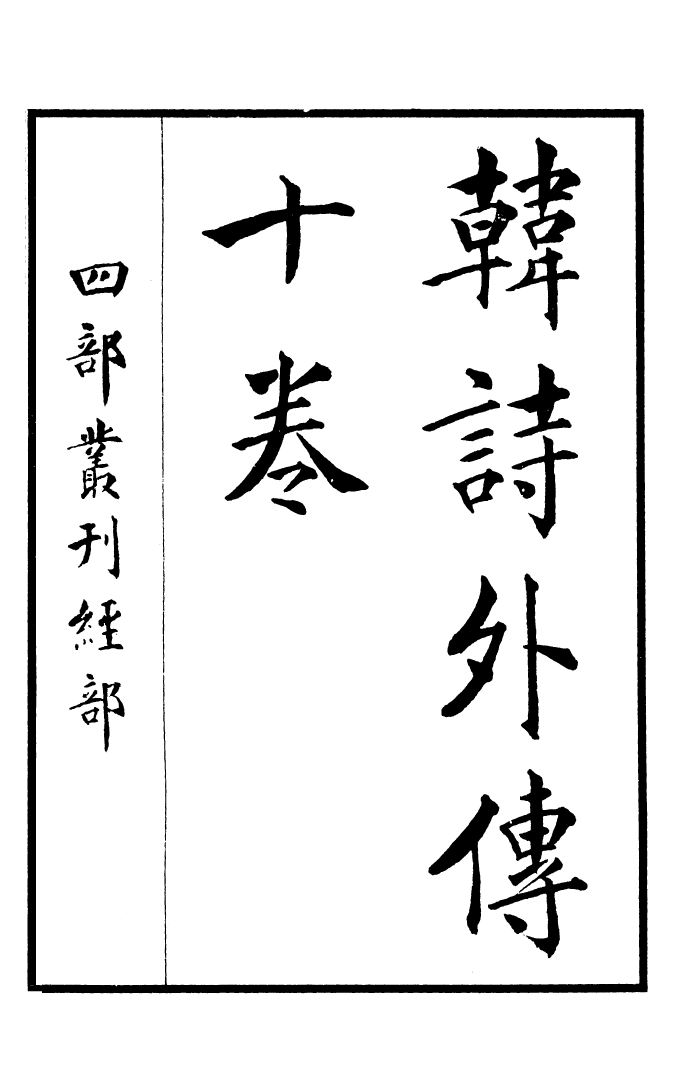 韓詩外傳
十卷
四部叢刊經部